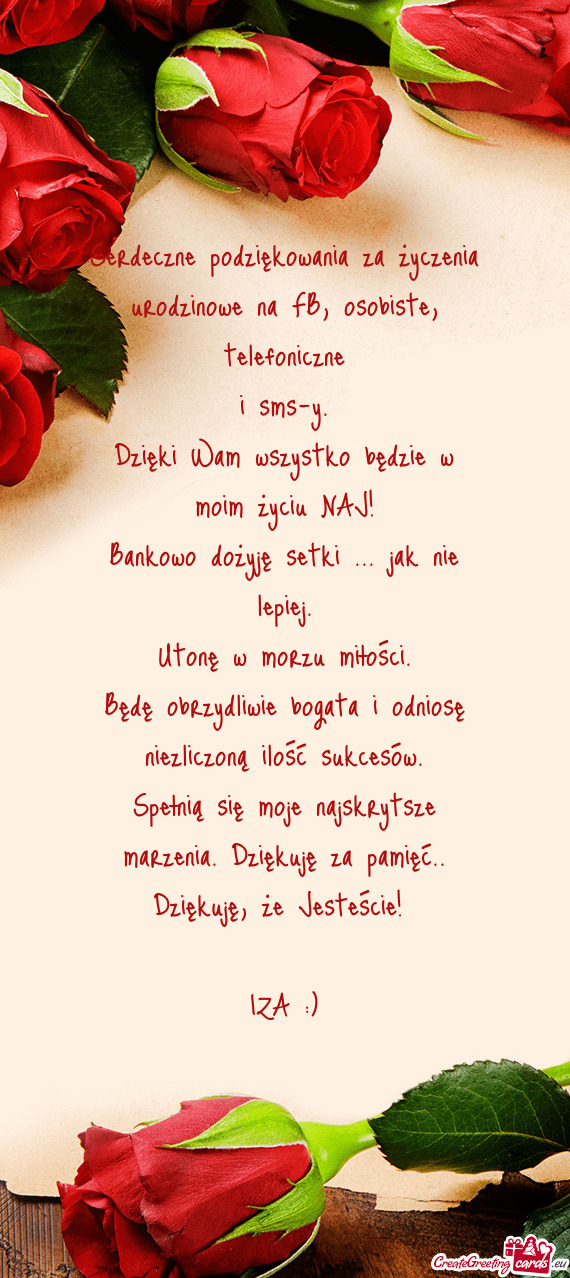 Serdeczne podziękowania za życzenia
urodzinowe na FB, osobiste,
telefoniczne
i sms-y.
Dzięki Wam wszystko będzie w
moim życiu NAJ!
Bankowo dożyję setki ... jak nie
lepiej.
Utonę w morzu miłości.
Będę obrzydliwie bogata i odniosę
niezliczoną ilość sukcesów.
Spełnią się moje najskrytsze
marzenia. Dziękuję za pamięć..
Dziękuję, że Jesteście!
IZA :)
CreateGreetingcards.eu